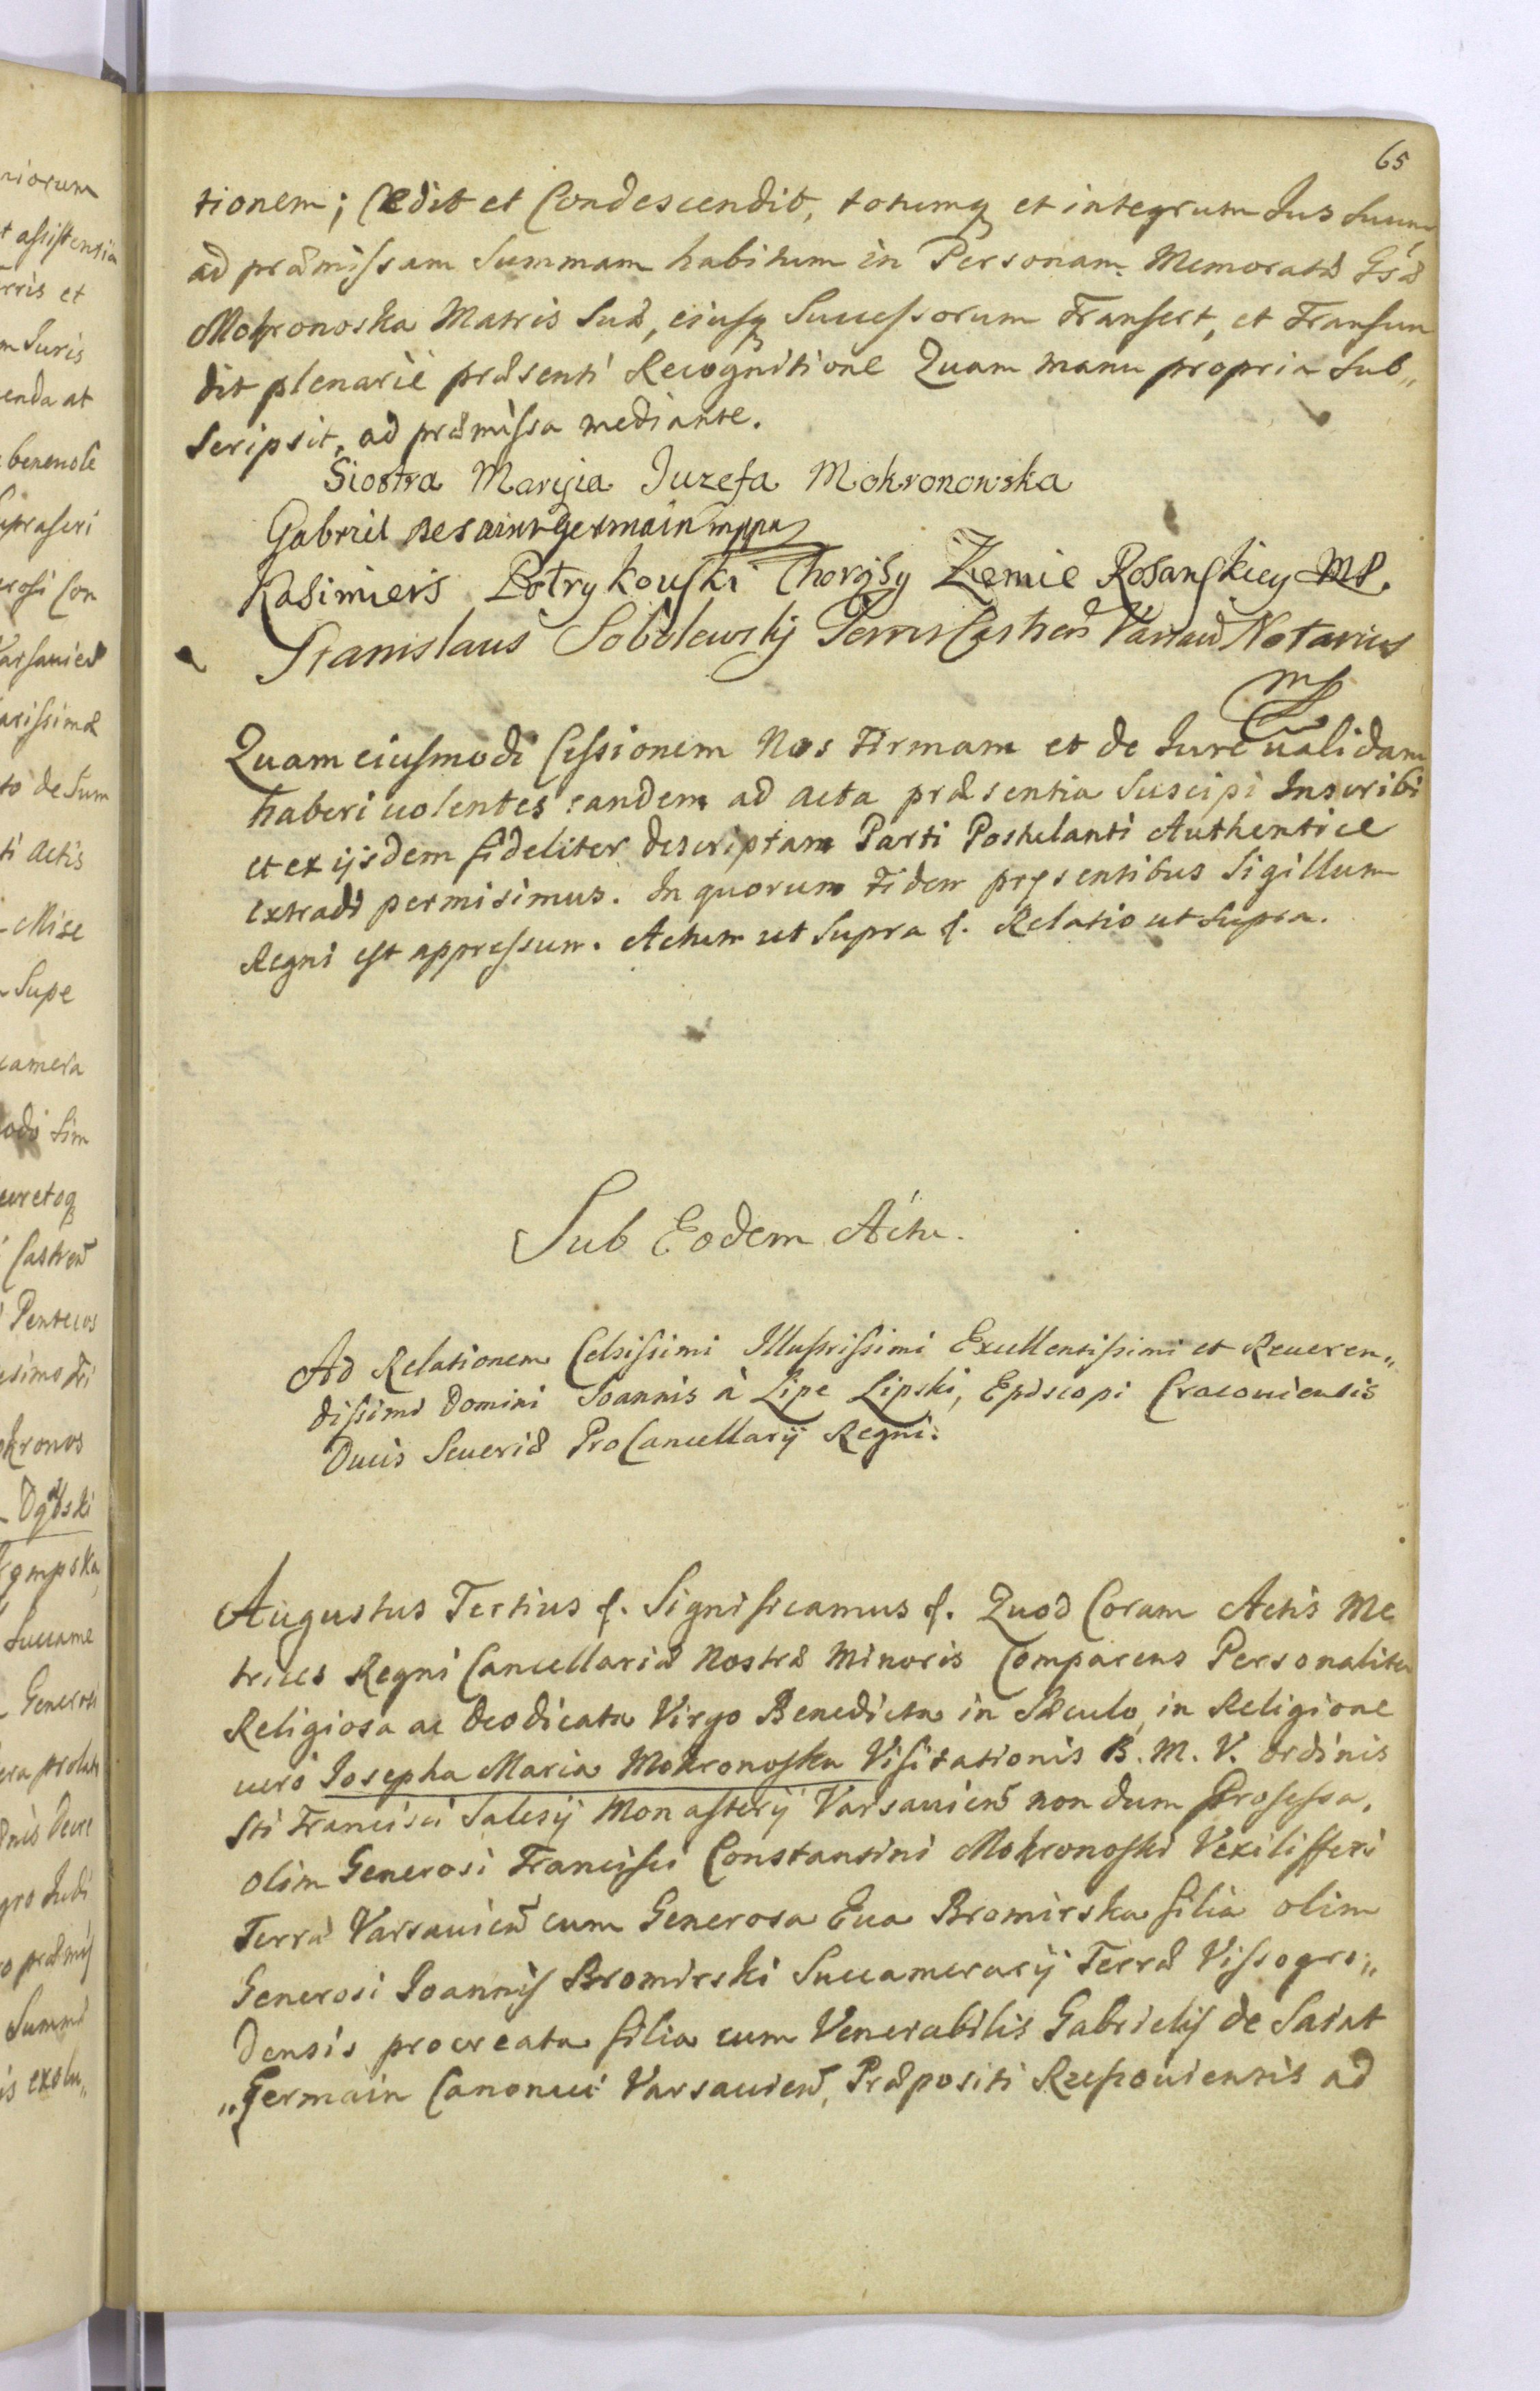 65
tionem; Cedit et Condescendit, totumq et integrum Jus Suum
ad præmissam Summam habitum in Personam Memoratæ Gsæ
Mokronoska Matris Suæ, eiusq Successorum Transfert, et Transfun
dit plenarie præsenti Recognitione Quam manu propria Sub„
Scripsit, ad præmissa mediante.
Siostra Maryia Juzefa Mokronowska
Gabriel De Saint Germain mppa
Kasimiers Potrykouski Chorąsy Ziemie Rosanskiey MP.
Stanislaus Sobolewskj Terrs Castren Varsauien Notarius
mp
Quam eiusmodi Cessionem Nos Firmam et de Iure ualidam
haberi uolentes eandem ad Acta præsentia Suscipi Inscribi
et ex ijsdem fideliter descriptam Parti Postulanti Authentice
extradi permisimus. In quorum Fidem pręsentibus Sigillum
Regni est appressum. Actum ut Supra &. Relatio ut Supra.
Sub Eodem Actu.
Ad Relationem Celsissimi Illustrissimi Excellentissimi et Reueren„
dissimi Domini Ioannis à Lipe Lipski, Episcopi Cracouiensis
Ducis Seueriæ ProCancellarij Regni.
Augustus Tertius &. Significamus &. Quod Coram Actis Me
trices Regni Cancellariæ Nostræ Minoris Comparens Personaliter
Religiosa ac Deo dicata Virgo Benedicta in Sæculo, in Religione
uero Iosepha Maria Mokronoska Visitationis B. M. V. Ordinis
Sti Francisci Salesij Monasterij Varsauien non dum Professa,
olim Generosi Francisci Constantini Mokronoski Vexilifferi
Terræ Varsauien cum Generosa Eua Bromirska filia olim
Generosi Ioannis Bromirski Succamerarij Terræ Vissogro„
densis procreata filia cum Venerabilis Gabrielis de Saint
„Germain Canonici Varsauien, Præpositi Rzeszouiensis ad